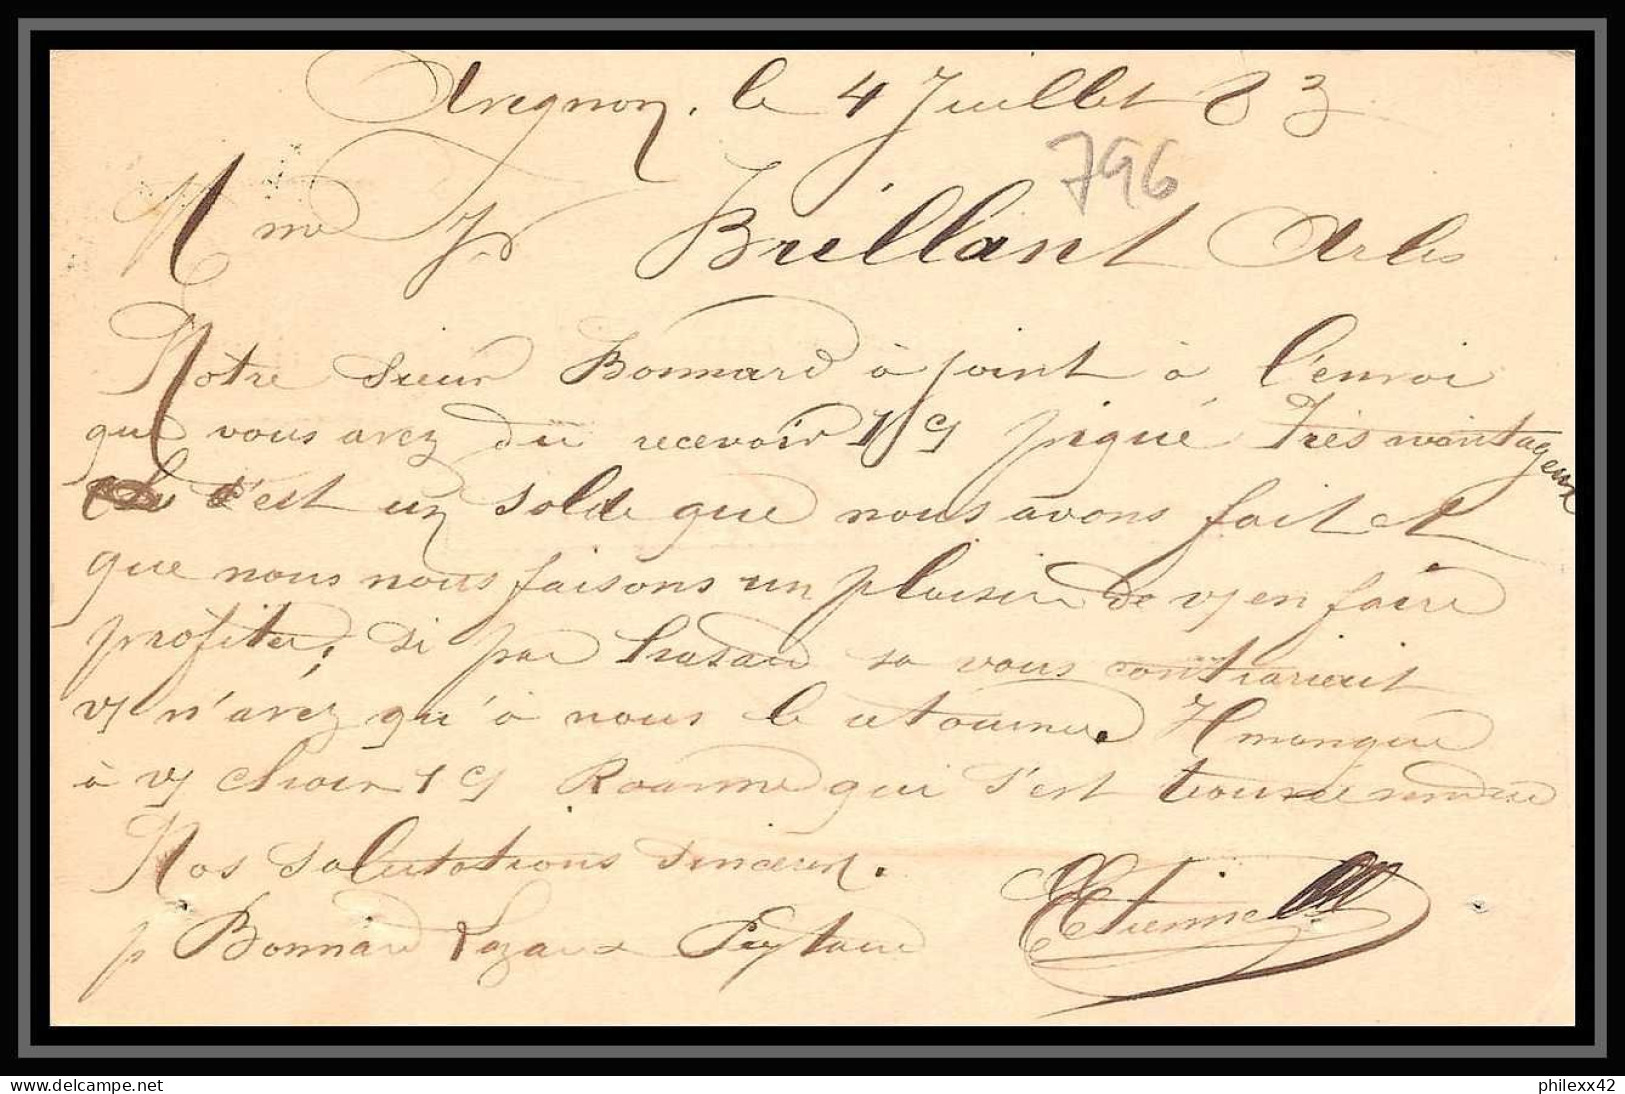 Avignon, le 4 Juillet 83
796
Mme Brillant Arles
Notre sieur Bonnard à joint à l'envoi
que vous avez du recevoir 1 piqué très avantageux
c'est un solde que nous avons fait et
que nous nous faisons un plaisir de vs en faire
profiter, si par hasard sa vous contrariait
vs n'avez qu'à nous le retourner. Il manque
à vs choix 1 Roanne qui s'est trouvé vendue
Nos salutations sincères.
p Bonnard Lazare Peytaud Etienne
delcampe.net
philexx42